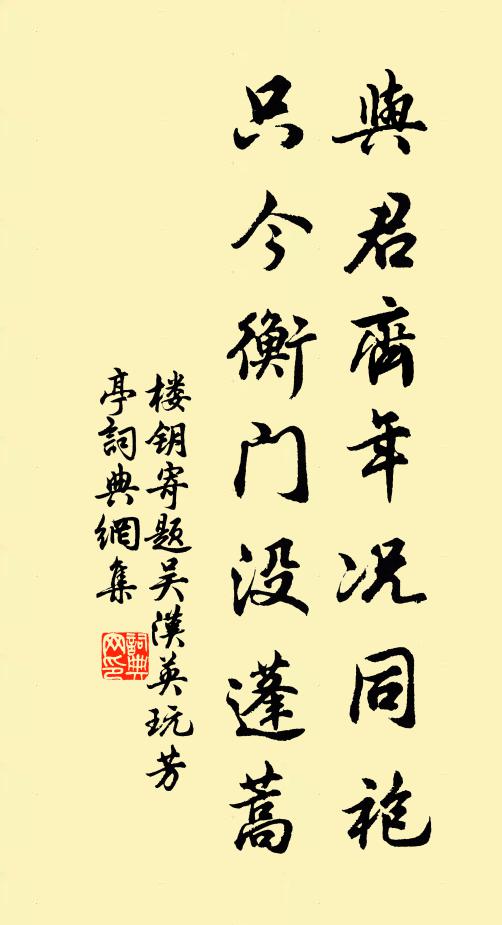 與君齊年况同袍
只今衡门没蓬蒿
楼钥寄题吴漢英玩芳
亭詞典網集
詞典網印